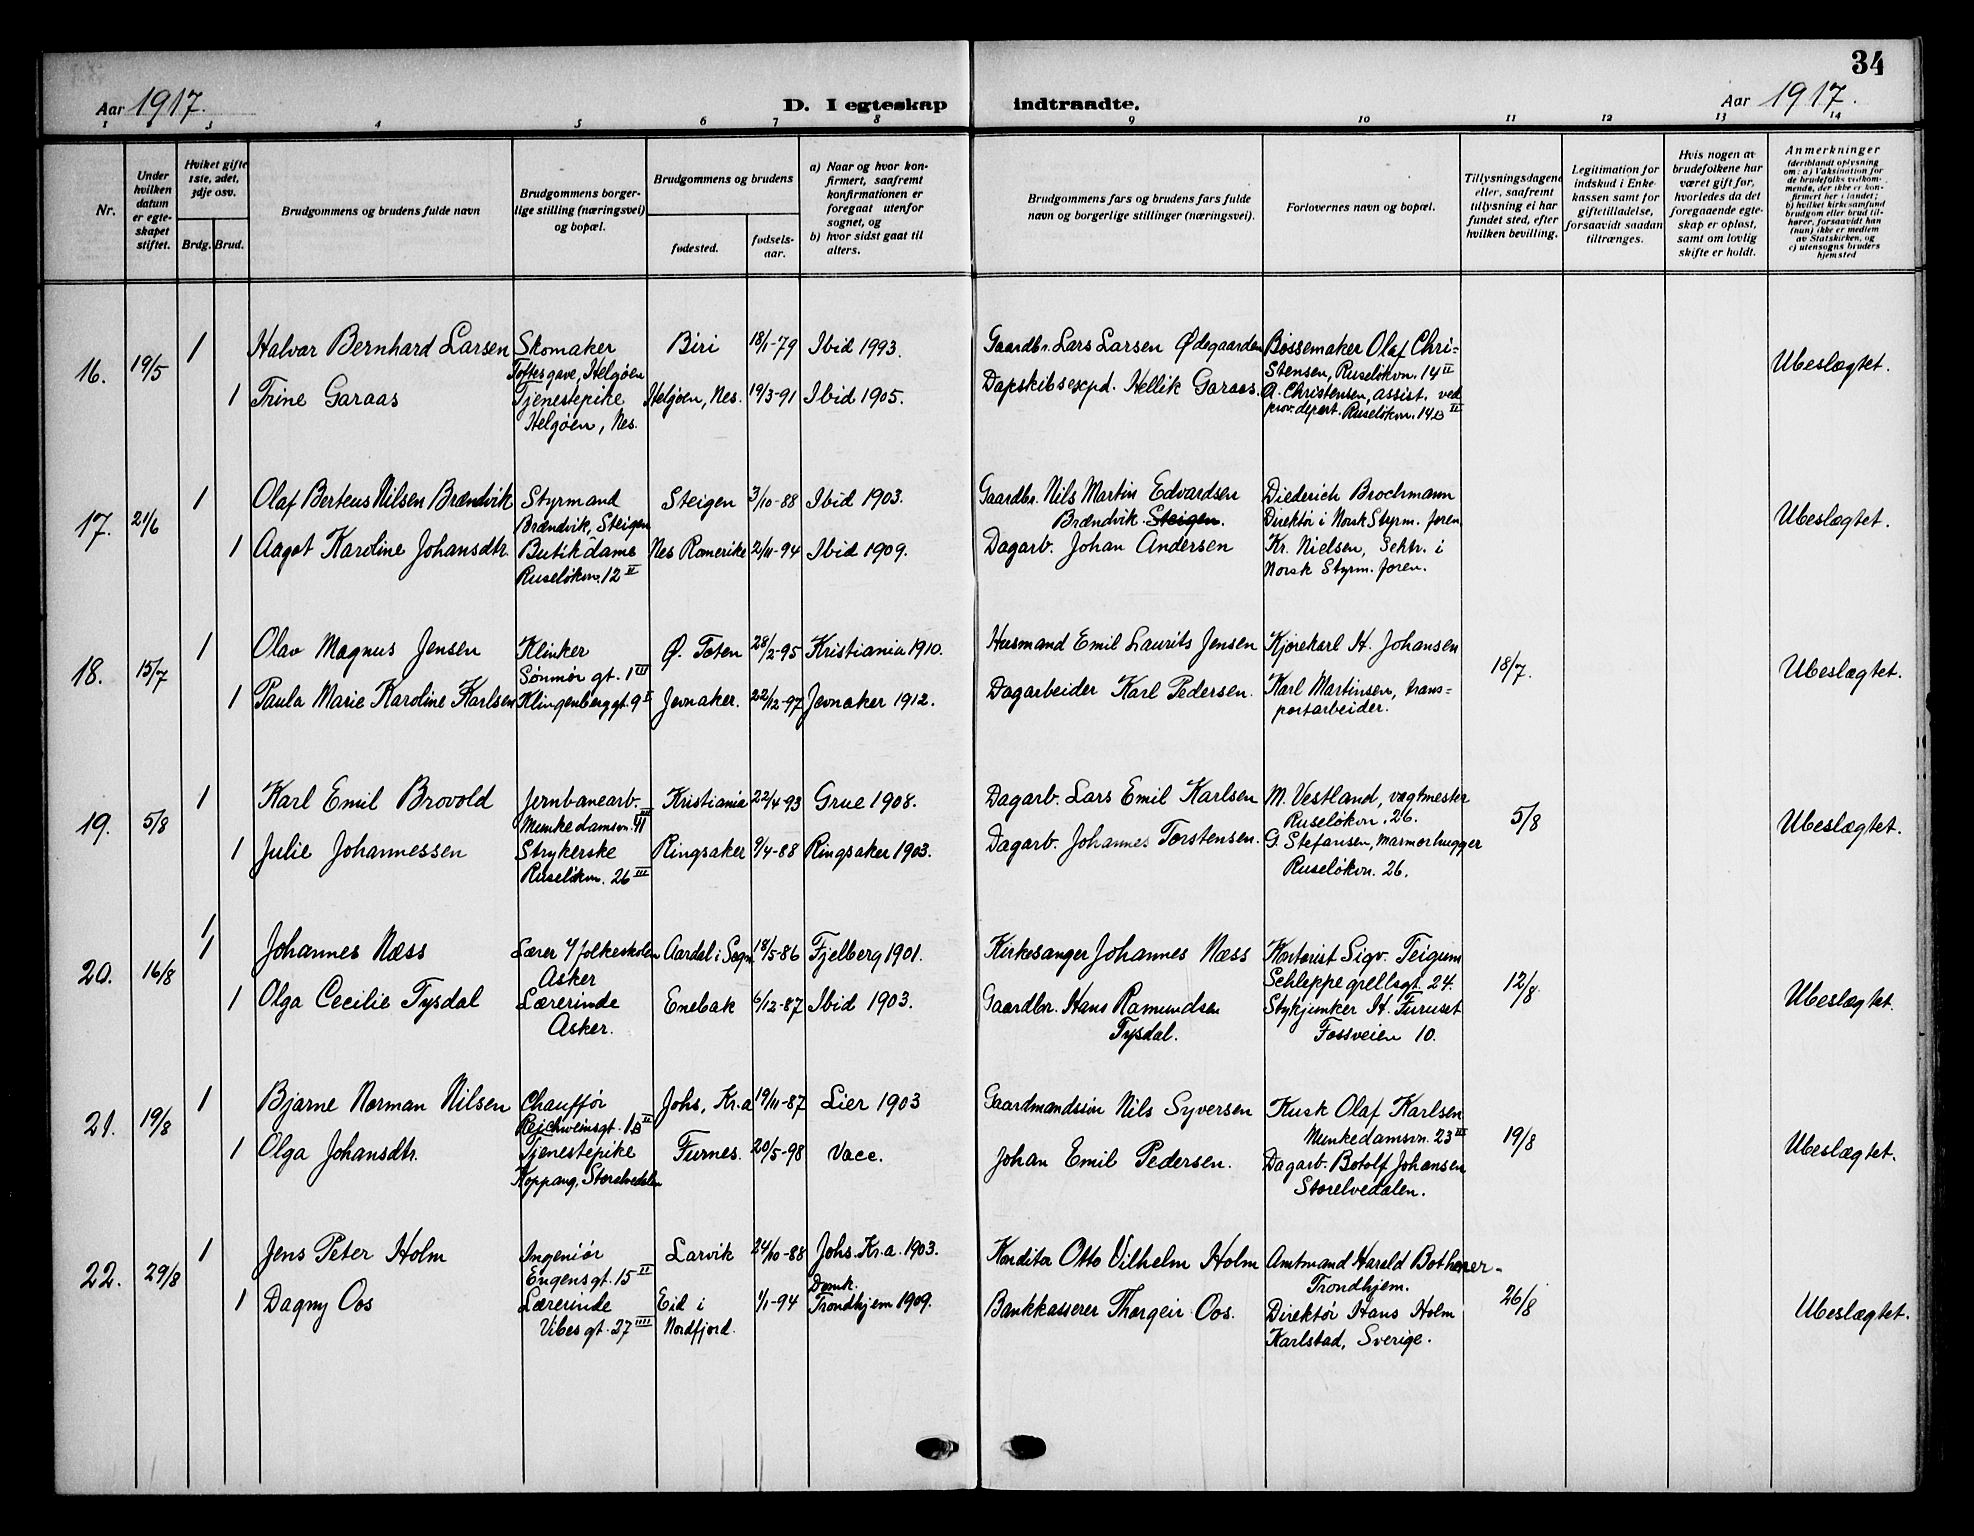 34
Aar 1917.
D. I egteskap indtraadte.
Aar 1917.
1 2 3 4 5 6 7 8 9 10 11 12 13 14
Nr.
Under hvilken datum er egteskapet stiftet.
Hviket gifte 1ste, 2det, 3dje osv.
Brdg. Brud.
Brudgommens og brudens fulde navn
Brudgommens borgerlige stilling (næringsvei) og bopæl.
Brudgommens og brudens
fødested.
fødselsaar.
a) Naar og hvor konfirmert, saafremt konfirmationen er foregaat utenfor sognet, og
b) hvor sidst gaat til alters.
Brudgommens fars og brudens fars fulde navn og borgerlige stillinger (næringsvei).
Forlovernes navn og bopæl.
Tillysningsdagene eller, saafremt tillysning ei har fundet sted, efter hvilken bevilling.
Legitimation for indskud i Enkekassen samt for giftetilladelse, forsaavidt saadan tiltrænges.
Hvis nogen av brudefolkene har været gift før, hvorledes da det foregaaende egteskap er opløst, samt om lovlig skifte er holdt.
Anmerkninger
(deriblandt oplysning om: a) Vaksination for de brudefolks vedkommende, der ikke er konfirmert her i landet; b) hvilket kirkesamfund brudgom eller brud tilhører, forsaavidt han (hun) ikke er medlem av Statskirken, og c) utensogns bruders hjemsted
16. 19/5 1 Halvar Bernhard Larsen Skomaker Toftesgave, Helgøen Biri 18/1-79 Ibid 1993. Gaardbr. Lars Larsen Ødegaarden Bøssemaker Olaf Chri-
stensen, Ruseløkvn. 14 II Ubeslægtet.
1 Trine Garaas Tjenestepike Helgøen, Nes. Helgøen, Nes. 19/3-91 Ibid 1905. Dapskibsexpd. Hellik Garaas. A. Christensen, assist. ved
prov. depart. Ruseløkvn. 14B II
17. 21/6 1 Olaf Berteus Nilsen Brændvik Styrmand Brændvik, Steigen Steigen 3/10-88 Ibid 1903. Gaardbr. Nils Martin Edvardsen Brændvik Steigen. Diederich Brochmann
Direktør i Norsk Styrm. foren. Ubeslægtet.
1 Aagot Karoline Johansdtr. Butikdame Ruseløkvn. 12 II Nes Romerike 2/11-94 Ibid 1909. Dagarb. Johan Andersen Kr. Nielsen, Sektr. i
Norsk Styrm. foren.
18. 15/7 1 Olav Magnus Jensen Klinker Sønmør gt. 1 III Ø. Toten 28/2-95 Kristiania 1910. Husmand Emil Laurits Jensen Kjørekarl H. Johansen 18/7. Ubeslægtet.
1 Paula Marie Karoline Karlsen Klingenberggt. 9 II Jevnaker. 22/12-97 Jevnaker 1912. Dagarbeider Karl Pedersen. Karl Martinsen, trans-
portarbeider.
19. 5/8 1 Karl Emil Brovold Jernbanearb. Munkedamsvn. 41 III Kristiania 22/4-93 Grue 1908. Dagarb. Lars Emil Karlsen M. Vestland, vægtmester
Ruseløkvn. 26. 5/8 Ubeslægtet.
1 Julie Johannessen Strykerske Ruseløkvn. 26 III Ringsaker 9/4-88 Ringsaker 1903. Dagarb. Johannes Torstensen. G. Stefansen, marmorhugger
Ruseløkvn. 26.
20. 16/8 1 1 Johannes Næss Lærer v/ folkeskolen Asker Aardal i Sogn. 18/5-86 Fjelberg 1901. Kirkesanger Johannes Næss Kontorist Sigv. Teigum
Schleppegrellsgt. 24. 12/8. Ubeslægtet.
1 Olga Cecilie Tysdal Lærerinde Asker. Enebak 6/12-87 Ibid 1903. Gaardbr. Hans Ramundsen Tysdal. Stykjunker H. Furuset
Fossveien 10.
21. 19/8 1 Bjarne Norman Nilsen Chauffør Reichweinsgt. 1B II Johs, Kr.a 19/11-87 Lier 1903 Gaardmandssøn Nils Syversen Kusk Olaf Karlsen
Munkedamsvn. 23 III 19/8 Ubeslægtet.
1 Olga Johansdtr. Tjenestepike Koppang, Storelvedalen Furnes. 20/5-98 Vace. Johan Emil Pedersen. Dagarb. Botolf Johansen
Storelvedalen.
22. 29/8 1 Jens Peter Holm Ingeniør Eugensgt. 15 II Larvik 24/10-88 Johs. Kr.a. 1903. Konditor Otto Vilhelm Holm Amtmand Harald Bothner-
Trondhjem. 26/8 Ubeslægtet.
1 Dagny Oos Lærerinde Vibesgt. 27 IIII Eid i Nordfjord. 1/1-94 Domk. Trondhjem 1909. Bankkasserer Thorgeir Oos. Direktør Hans Holm
Karlstad, Sverige.